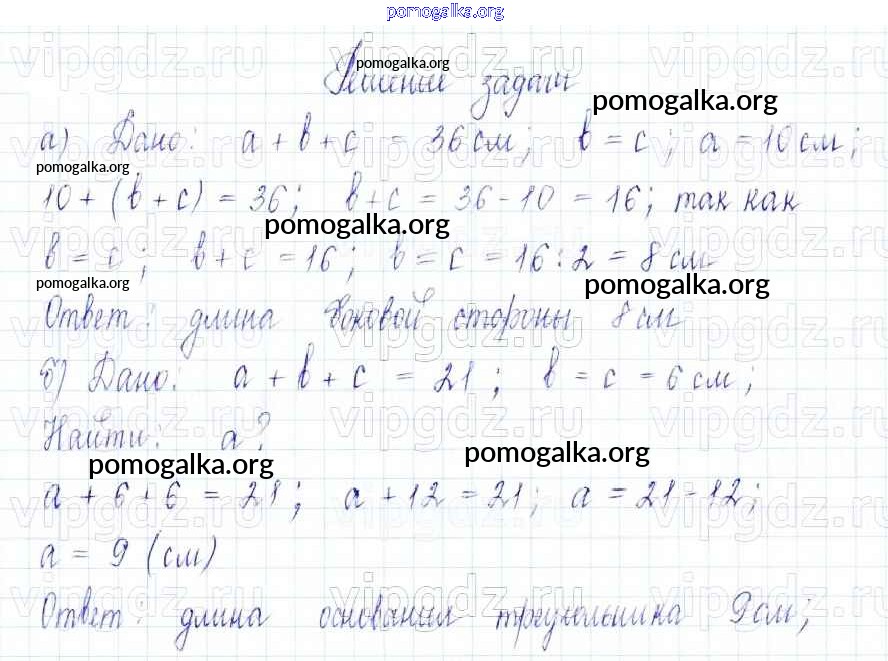 pomogalka.org
Решение задачи
pomogalka.org
pomogalka.org
а) Дано: a + b + c = 36 см; b = c; a = 10 см;
pomogalka.org
10 + (b + c) = 36; b + c = 36 - 10 = 16; так как
pomogalka.org
b = c; b + c = 16; b = c = 16 : 2 = 8 см
pomogalka.org
pomogalka.org
Ответ: длина боковой стороны 8 см
б) Дано: a + b + c = 21; b = c = 6 см;
Найти: a?
pomogalka.org
pomogalka.org
a + 6 + 6 = 21; a + 12 = 21; a = 21 - 12;
a = 9 (см)
Ответ: длина основания треугольника 9 см;
vipgdz.ru